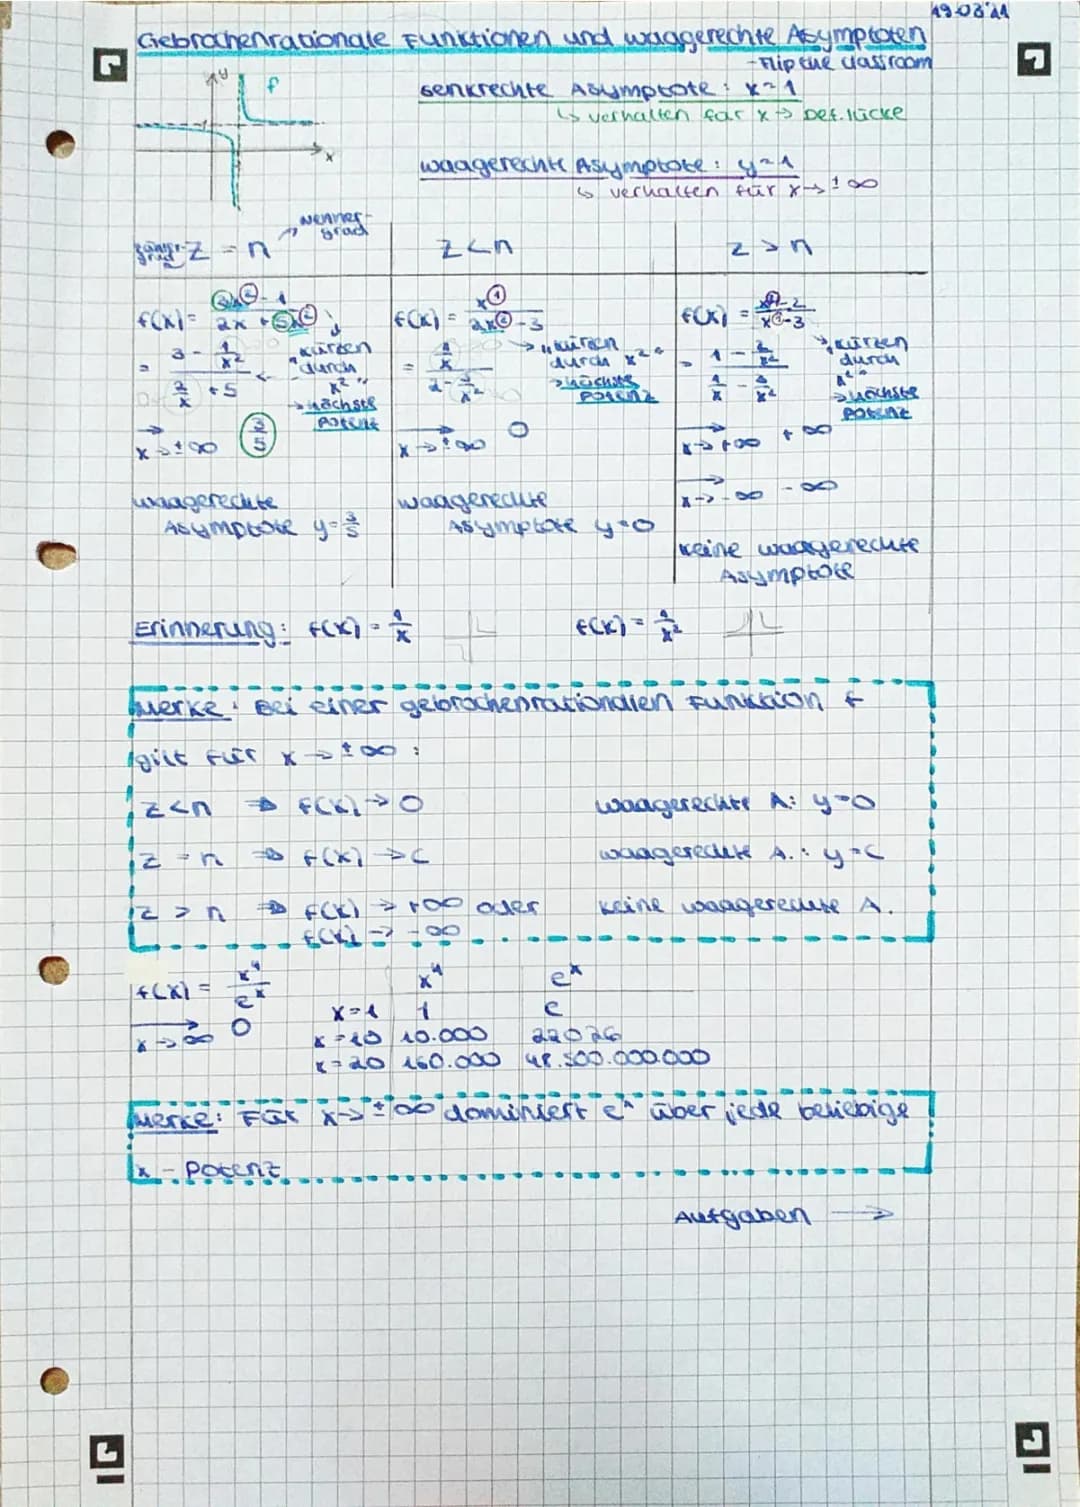 19.03'21
Gebrochenrationale Funktionen und waagerechte Asymptoten
- Flip the classroom
y f x
senkrechte Asymptote: x=1
↳ verhalten für x→ Def.lücke
waagerechte Asymptote: y=1
↳ verhalten für x→ ±∞
Zählergrad z = n → Nennergrad
f(x) = (3x² - 1)/(2x + 5x²)
= (3 - 1/x²)/(2/x + 5)
"kürzen durch x²"
→ höchste Potenz
x→±∞ 3/5
waagerechte
Asymptote y=3/5
z < n
f(x) = x¹/(2x² - 3)
= (1/x)/(2 - 3/x²)
"kürzen durch x²"
→ höchste Potenz
x→±∞ 0
waagerechte
Asymptote y=0
z > n
= (1 - 2/x²)/(1/x - 3/x²)
"kürzen durch x²"
→ höchste Potenz
x→+∞ +∞
x→-∞ -∞
keine waagerechte
Asymptote
Erinnerung: f(x) = 1/x f(x) = 1/x²
Merke: Bei einer gebrochenrationalen Funktion f
gilt für x → ±∞ :
z<n ⇒ f(x)→0 waagerechte A: y=0
z = n ⇒ f(x) →c waagerechte A.: y=c
z > n ⇒ f(x) → +∞ oder keine waagerechte A.
f(x) → -∞
f(x) = x⁴/eˣ
x→∞ 0
x⁴ eˣ
x=1 1 e
x=10 10.000 22026
x=20 160.000 48.500.000.000
Merke: Für x→ ±∞ dominiert eˣ über jede beliebige
x - Potenz
Aufgaben →